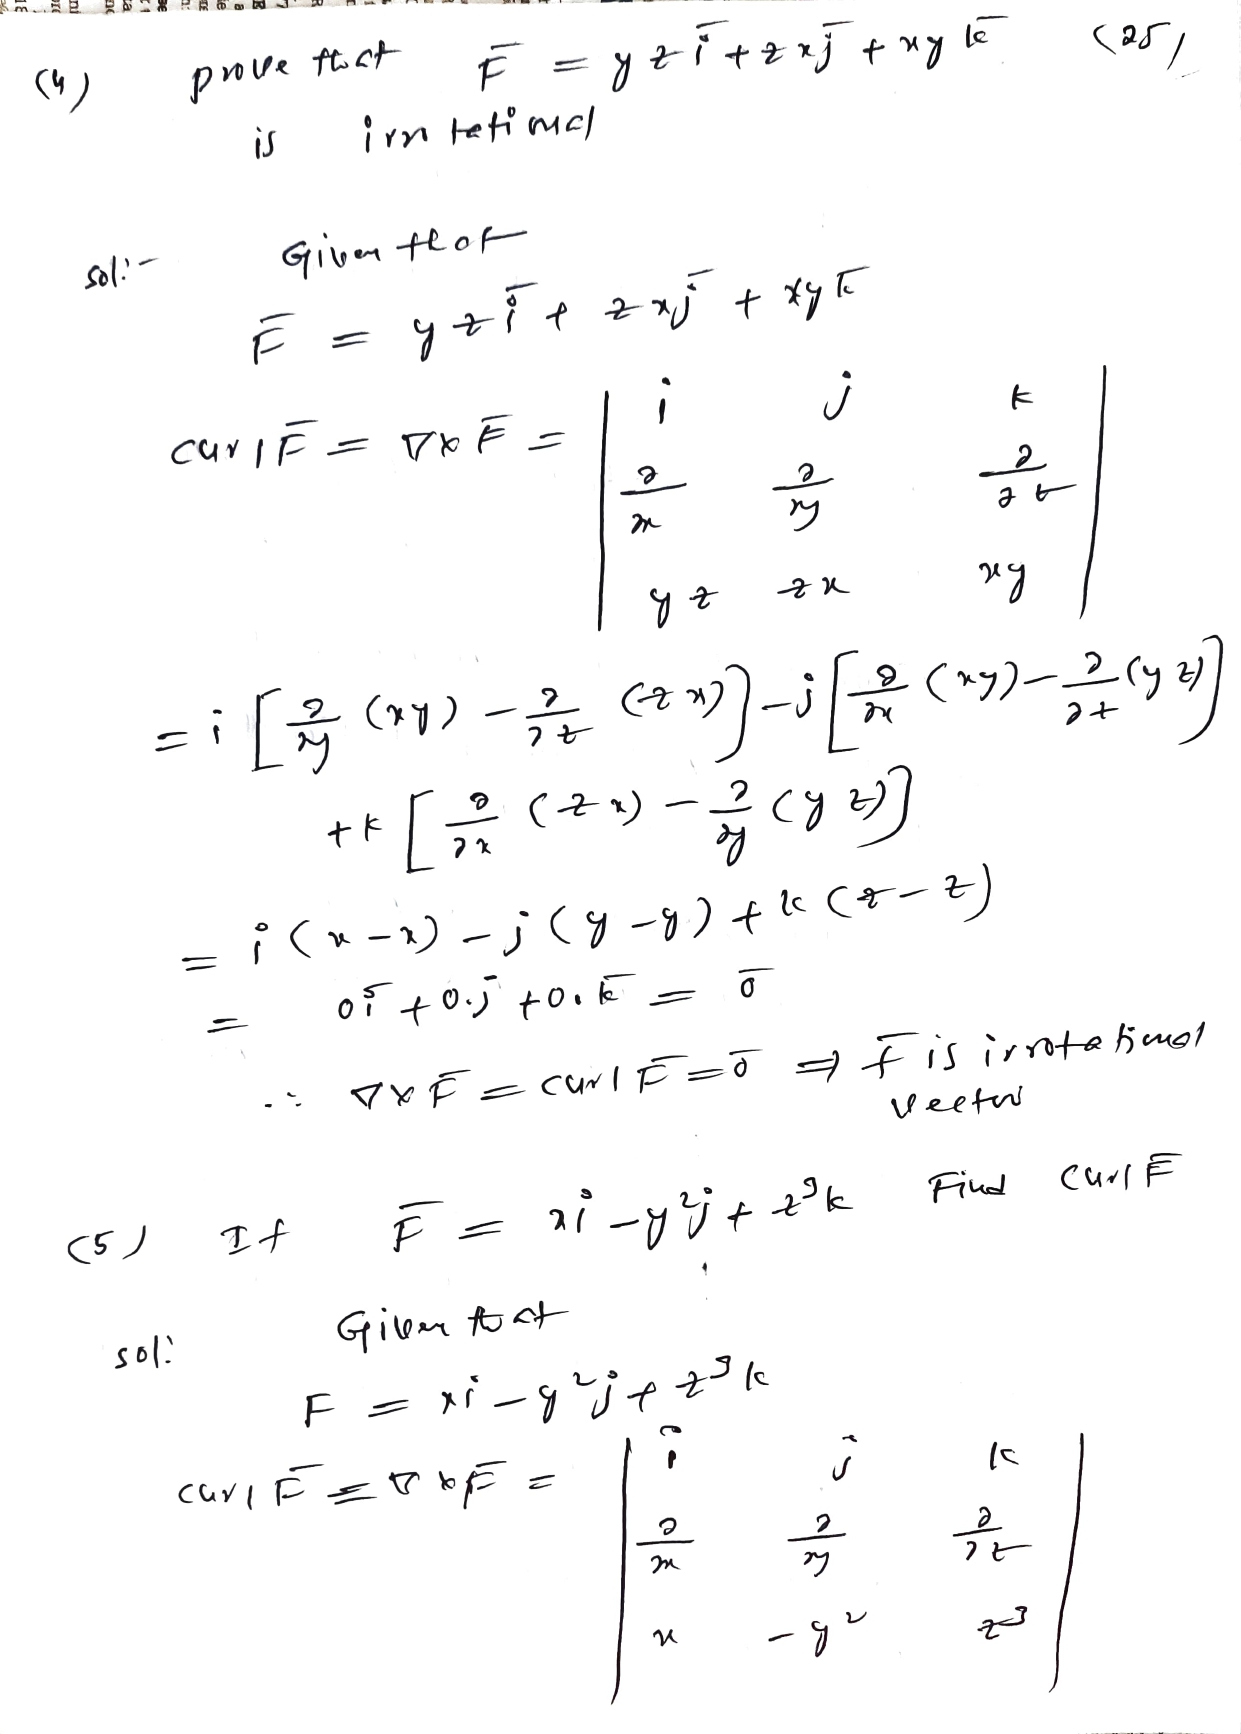 (4) prove that F̄ = y z ī + z x j̄ + x y k̄ (25)
is irrotational
sol:- Given that
F̄ = y z ī + z x j̄ + x y k̄
curl F̄ = ∇ x F̄ = | i j k |
| ∂/∂x ∂/∂y ∂/∂z |
| y z z x x y |
= i [ ∂/∂y (xy) - ∂/∂z (z x) ] - j [ ∂/∂x (xy) - ∂/∂z (y z) ]
+ k [ ∂/∂x (z x) - ∂/∂y (y z) ]
= i (x - x) - j (y - y) + k (z - z)
= 0ī + 0.j̄ + 0.k̄ = 0̄
∴ ∇ x F̄ = curl F̄ = 0̄ ⇒ f̄ is irrotational
vector
(5) If F̄ = xi - y²j + z³k Find curl F̄
sol: Given that
F = xi - y²j + z³k
curl F̄ = ∇ x F̄ = | i j k |
| ∂/∂x ∂/∂y ∂/∂z |
| x -y² z³ |